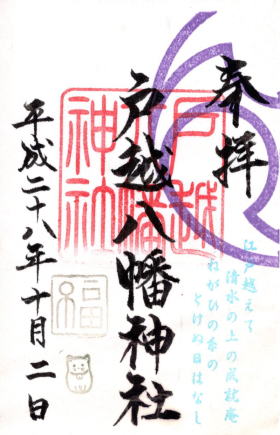 奉拝
戸越八幡神社
平成二十八年十月二日
戸越
八幡
神社
福
江戸越えて
清水の上の成就庵
ねがひの糸の
とけぬ日はなし